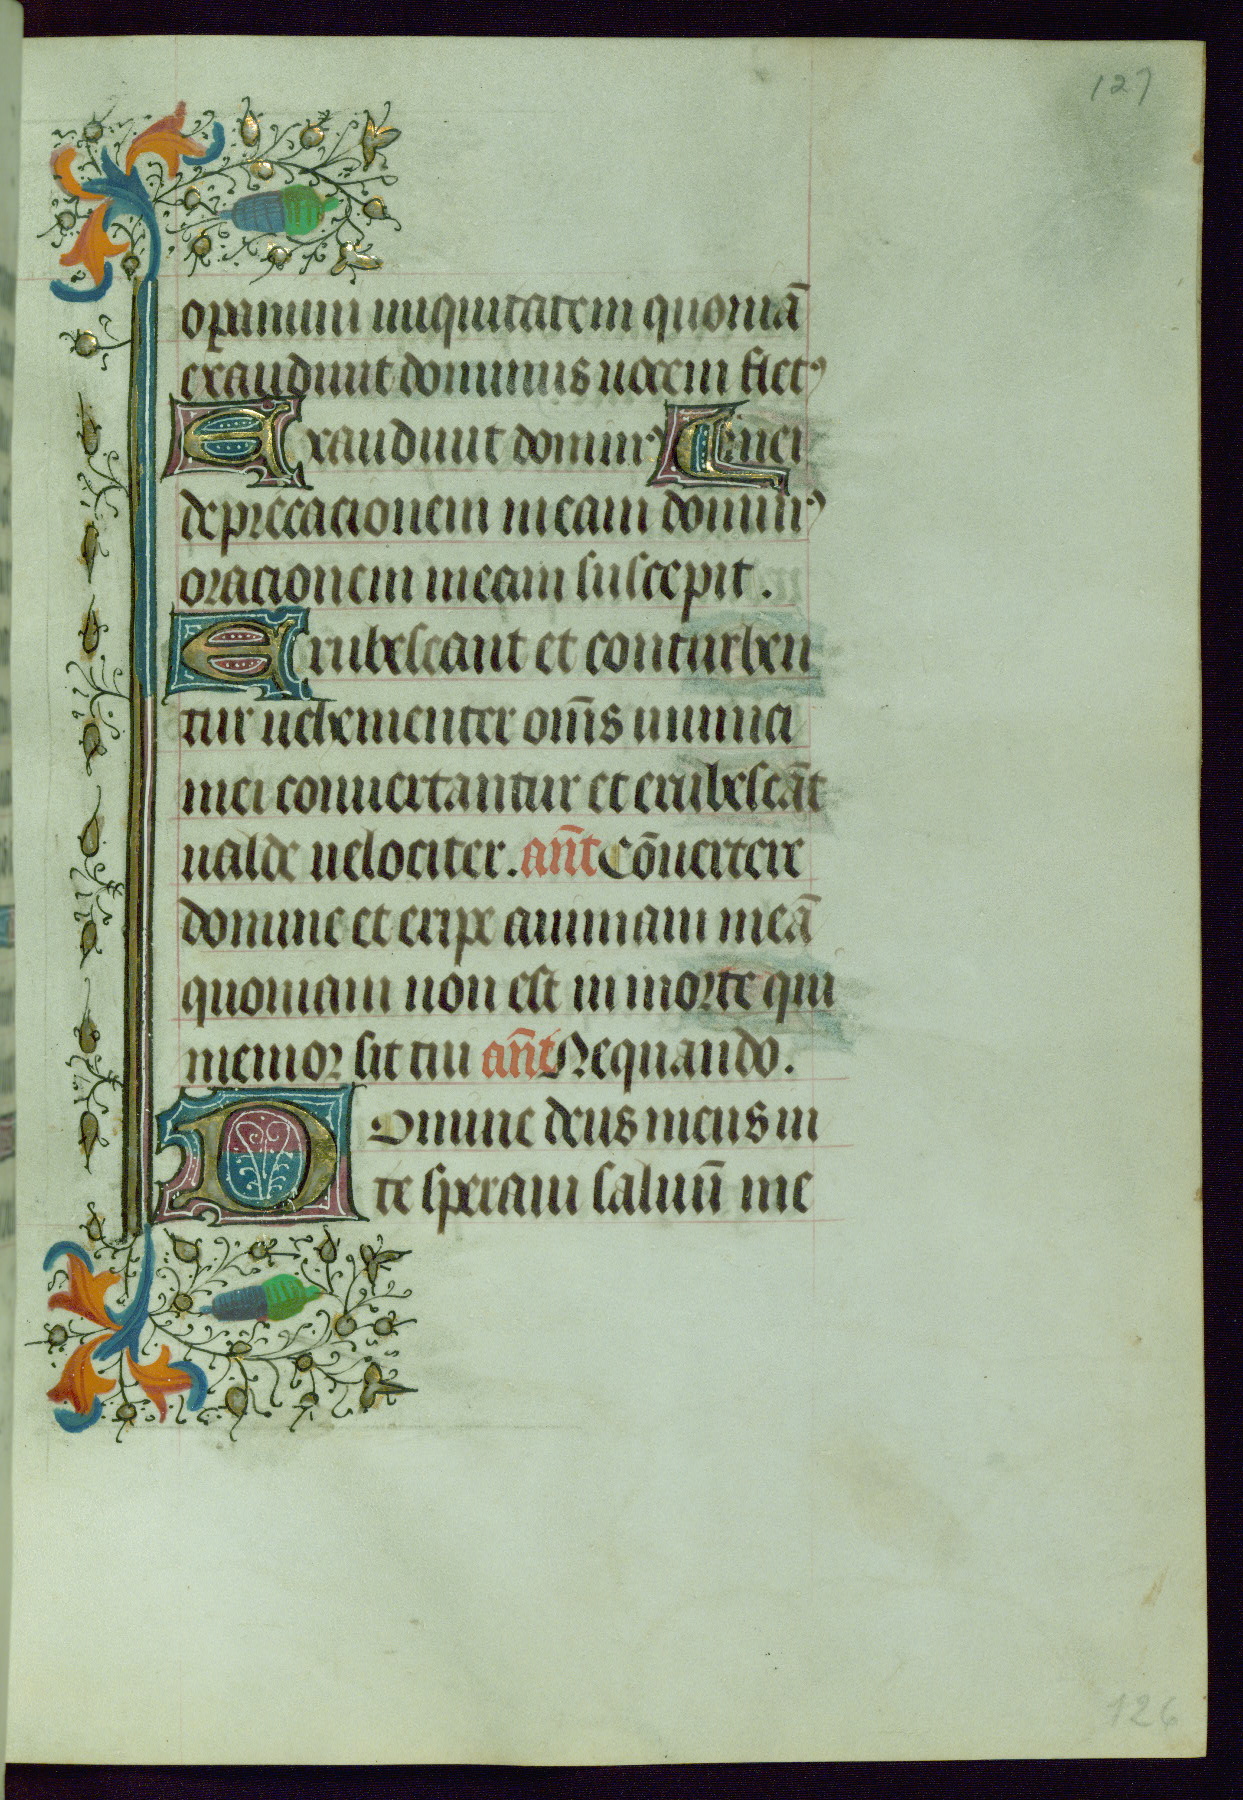 127
operamini iniquitatem quoniā
exaudiuit dominus uocem flet⁹
Exaudiuit domin⁹ mei
deprecacionem meam domin⁹
oracionem meam suscepit.
Erubescant et conturben
tur uehementer om̄s inimici
mei conuertantur et erubescāt
ualde uelociter. an̄t Cōuertere
domine et eripe animam meā
quoniam non est in morte qui
memor sit tui an̄t Nequando.
Domine deus meus in
te speraui saluū me
126